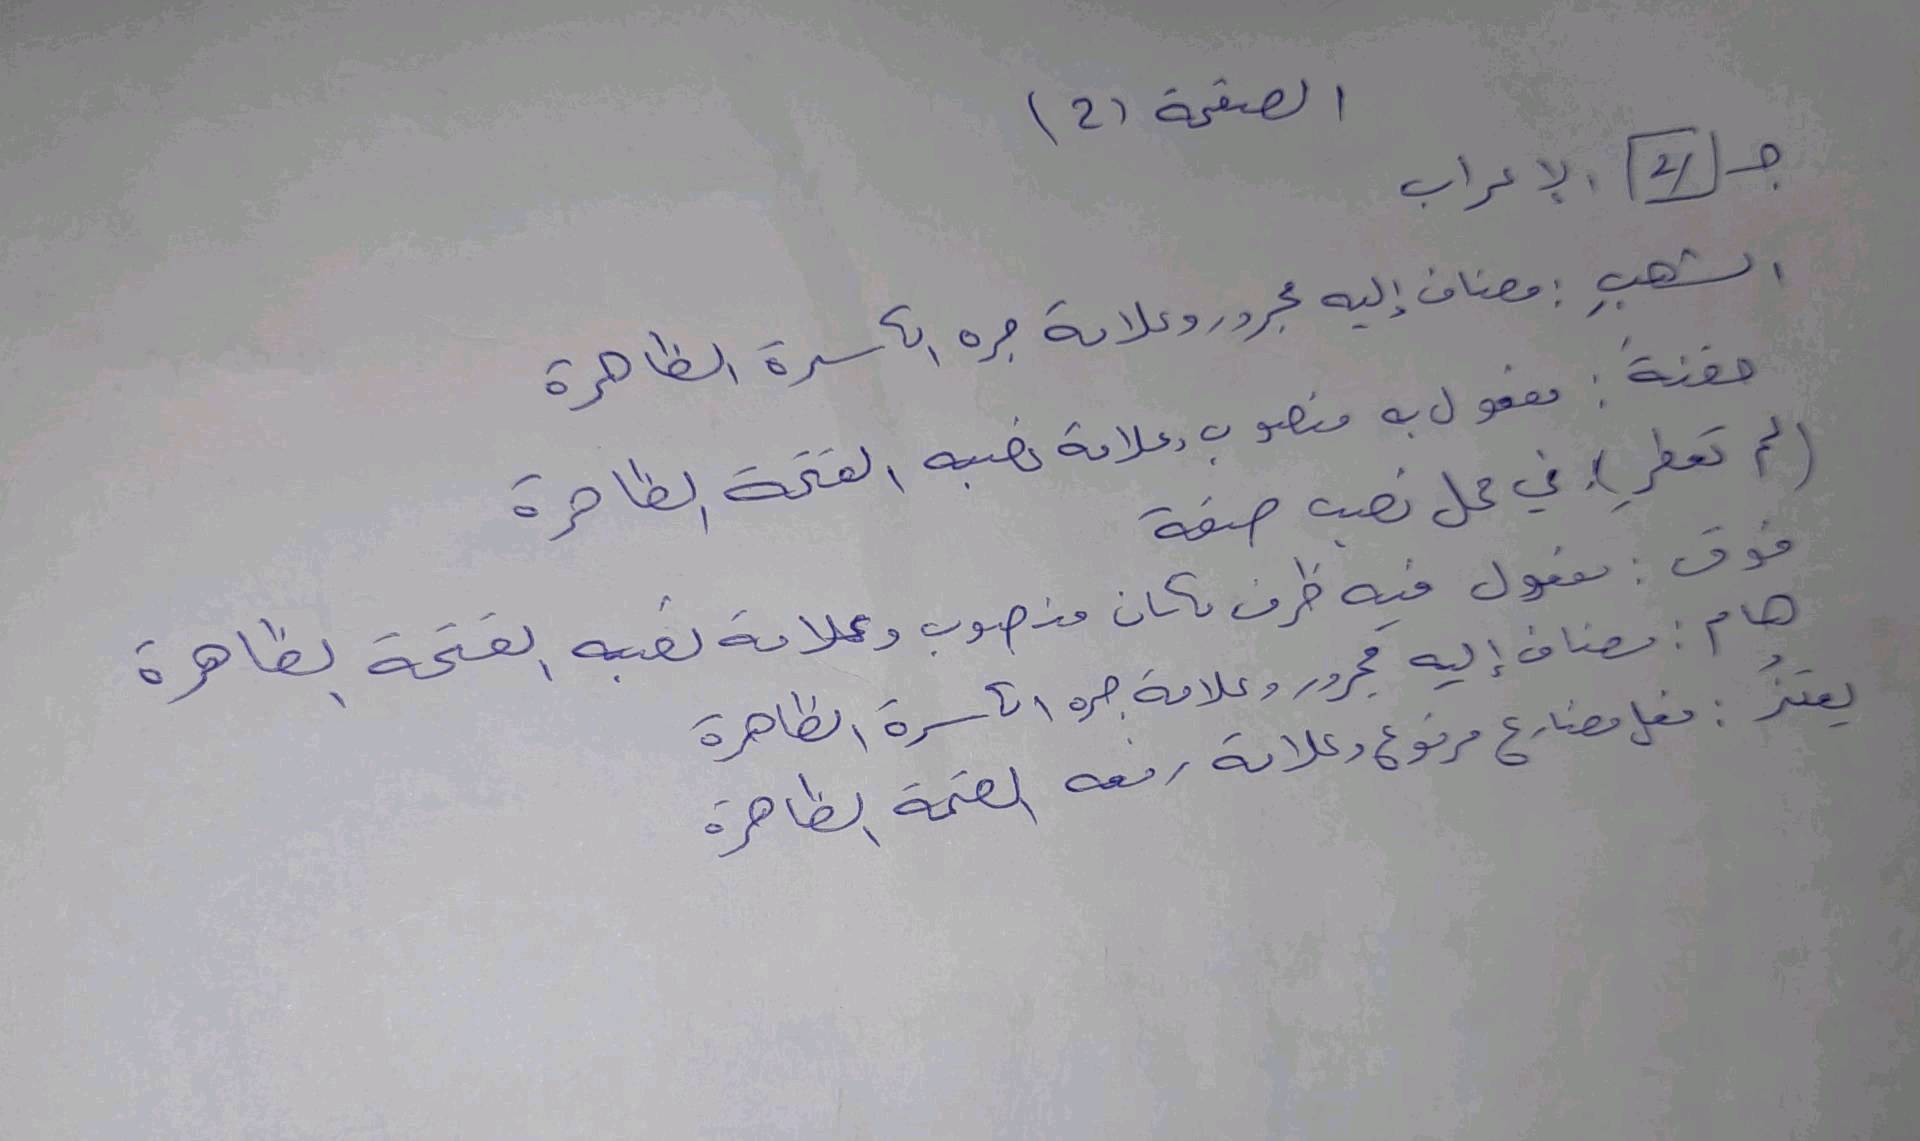 الصفحة (2)
جـ 2/ الإعراب
الشهبِ : مضاف إليه مجرور وعلامة جره الكسرة الظاهرة
حفنةً : مفعول به منصوب وعلامة نصبه الفتحة الظاهرة
(لم تمطرِ) : في محل نصب صفة
فوق : مفعول فيه ظرف مكان منصوب وعلامة نصبه الفتحة الظاهرة
هامِ : مضاف إليه مجرور وعلامة جره الكسرة الظاهرة
يعتزُّ : فعل مضارع مرفوع وعلامة رفعه الضمة الظاهرة